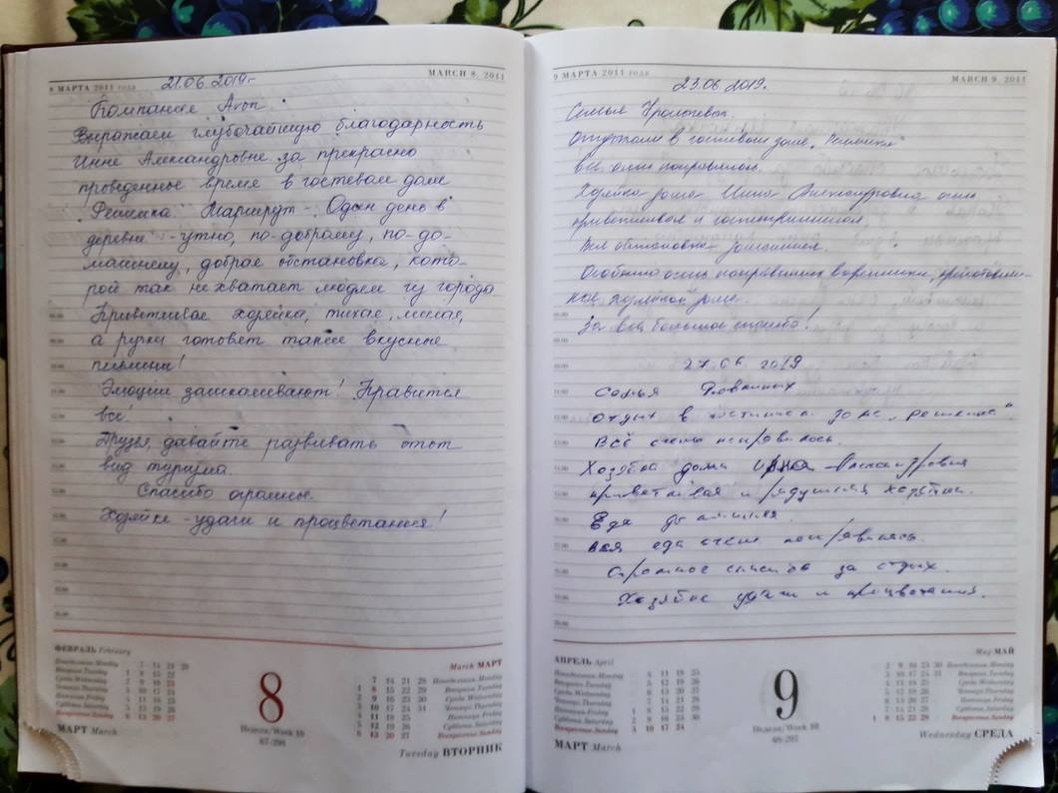 8 МАРТА 2011 года
MARCH 8, 2011
21.06.2019г.
Компания
Выражаем глубочайшую благодарность
Инне Александровне за прекрасно
проведенное время в гостевом доме
"Решимка" Маршрут - Один день в
деревне - уютно, по-доброму, по-до-
машнему, добрая обстановка, кото-
рой так не хватает людям из города
Приветливая хозяйка, тихая, милая,
а руки готовят такие вкусные
пельмени!
Эмоции зашкаливают! Нравится
все!
Друзья, давайте развивать этот
вид туризма
Спасибо огромное.
Хозяйке - удачи и процветания!
ФЕВРАЛЬ February
March МАРТ
8
Неделя/Week 10
67-298
МАРТ March
Tuesday ВТОРНИК
9 МАРТА 2011 года
MARCH 9, 2011
23.06 2019г.
Семья
Отдыхали в гостевом доме
Все очень понравилось.
Хозяйка дома Инна Александровна очень
приветливая и гостеприимная
Вся обстановка домашняя.
Особенно очень понравились вареники, приготовлен-
ные хозяйкой дома.
За все большое спасибо!
27.06 2019
Семья
Отдых в гостином доме "Решимка"
Всё очень понравилось.
Хозяйка дома Инна Александровна
приветливая и радушная хозяйка.
Еда домашняя.
вся еда очень понравилась.
Огромное спасибо за отдых.
Хозяйке удачи и процветания.
АПРЕЛЬ April
May МАЙ
9
Неделя/Week 10
68-297
МАРТ March
Wednesday СРЕДА